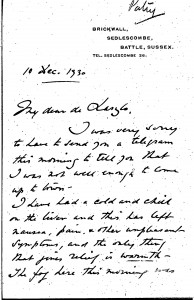 BRICKWALL,
SEDLESCOMBE,
BATTLE, SUSSEX.
TEL. SEDLESCOMBE 26.
10 Dec. 1930
My dear de Laszlo,
I was very sorry
to have to send you a telegram
this morning to tell you that
I was not well enough to come
up to town -
I have had a cold and chill
on the liver and this has left
nausea, pain & other unpleasant
symptoms, and the only thing
that gives relief is warmth -
The fog here this morning was